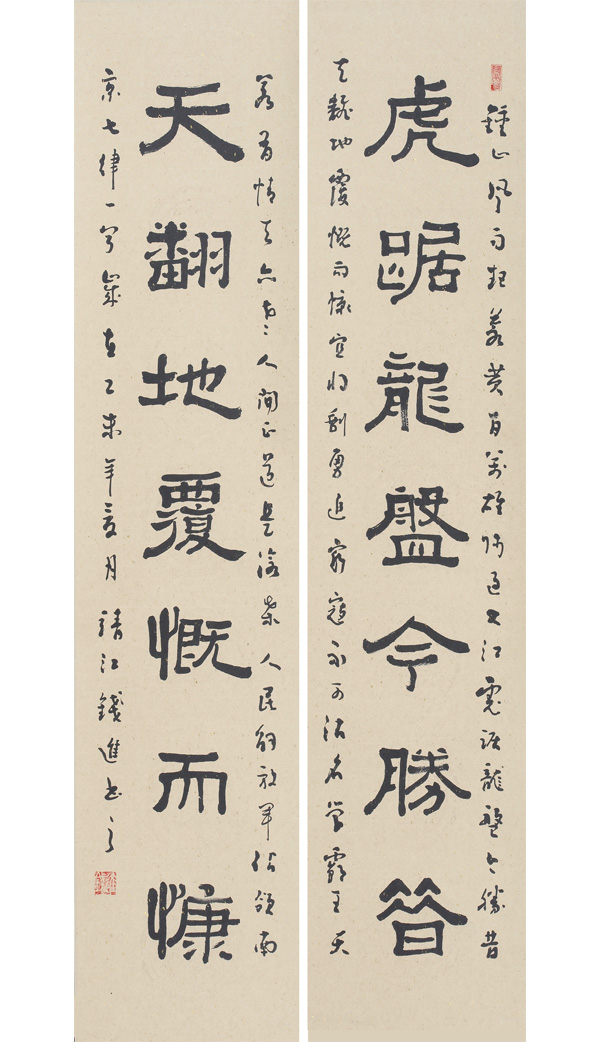 鍾山風雨起蒼黃百萬雄師過大江虎踞龍盤今勝昔
虎踞龍盤今勝昔
天翻地覆慨而慷宜將剩勇追窮寇不可沽名學霸王天
若有情天亦老〻人間正道是滄桑人民解放軍佔領南
天翻地覆慨而慷
京七律一首歲在乙未年夏月靖江錢進書之